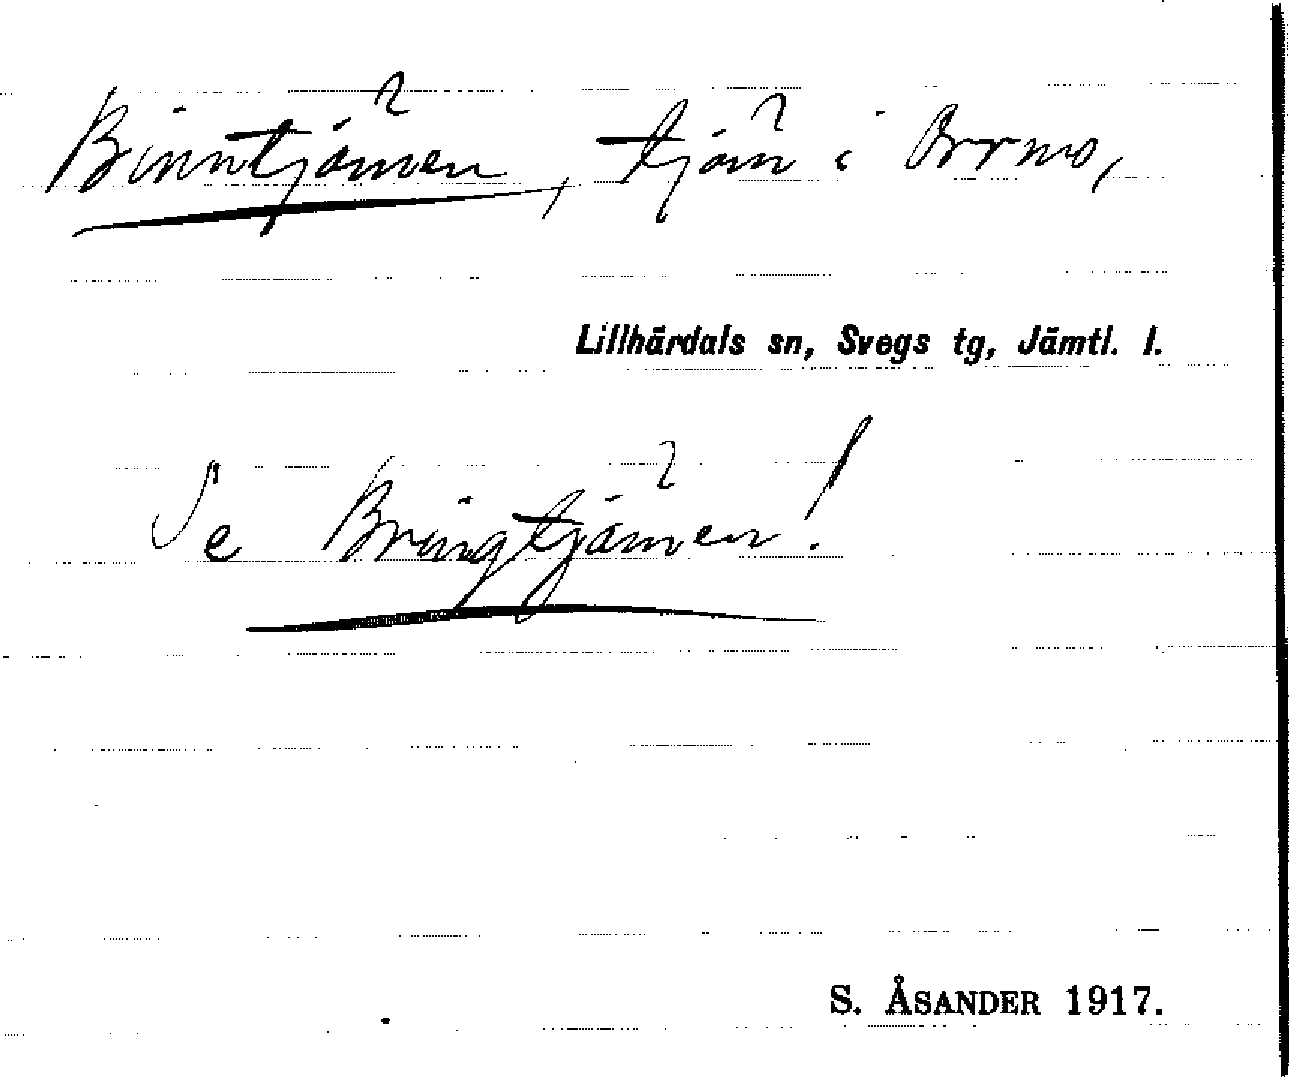 Binntjärnen, tjärn i Orrmo,
Lillhärdals sn, Svegs tg, Jämtl. l.
Se Bringtjärnen!
S. ÅSANDER 1917.